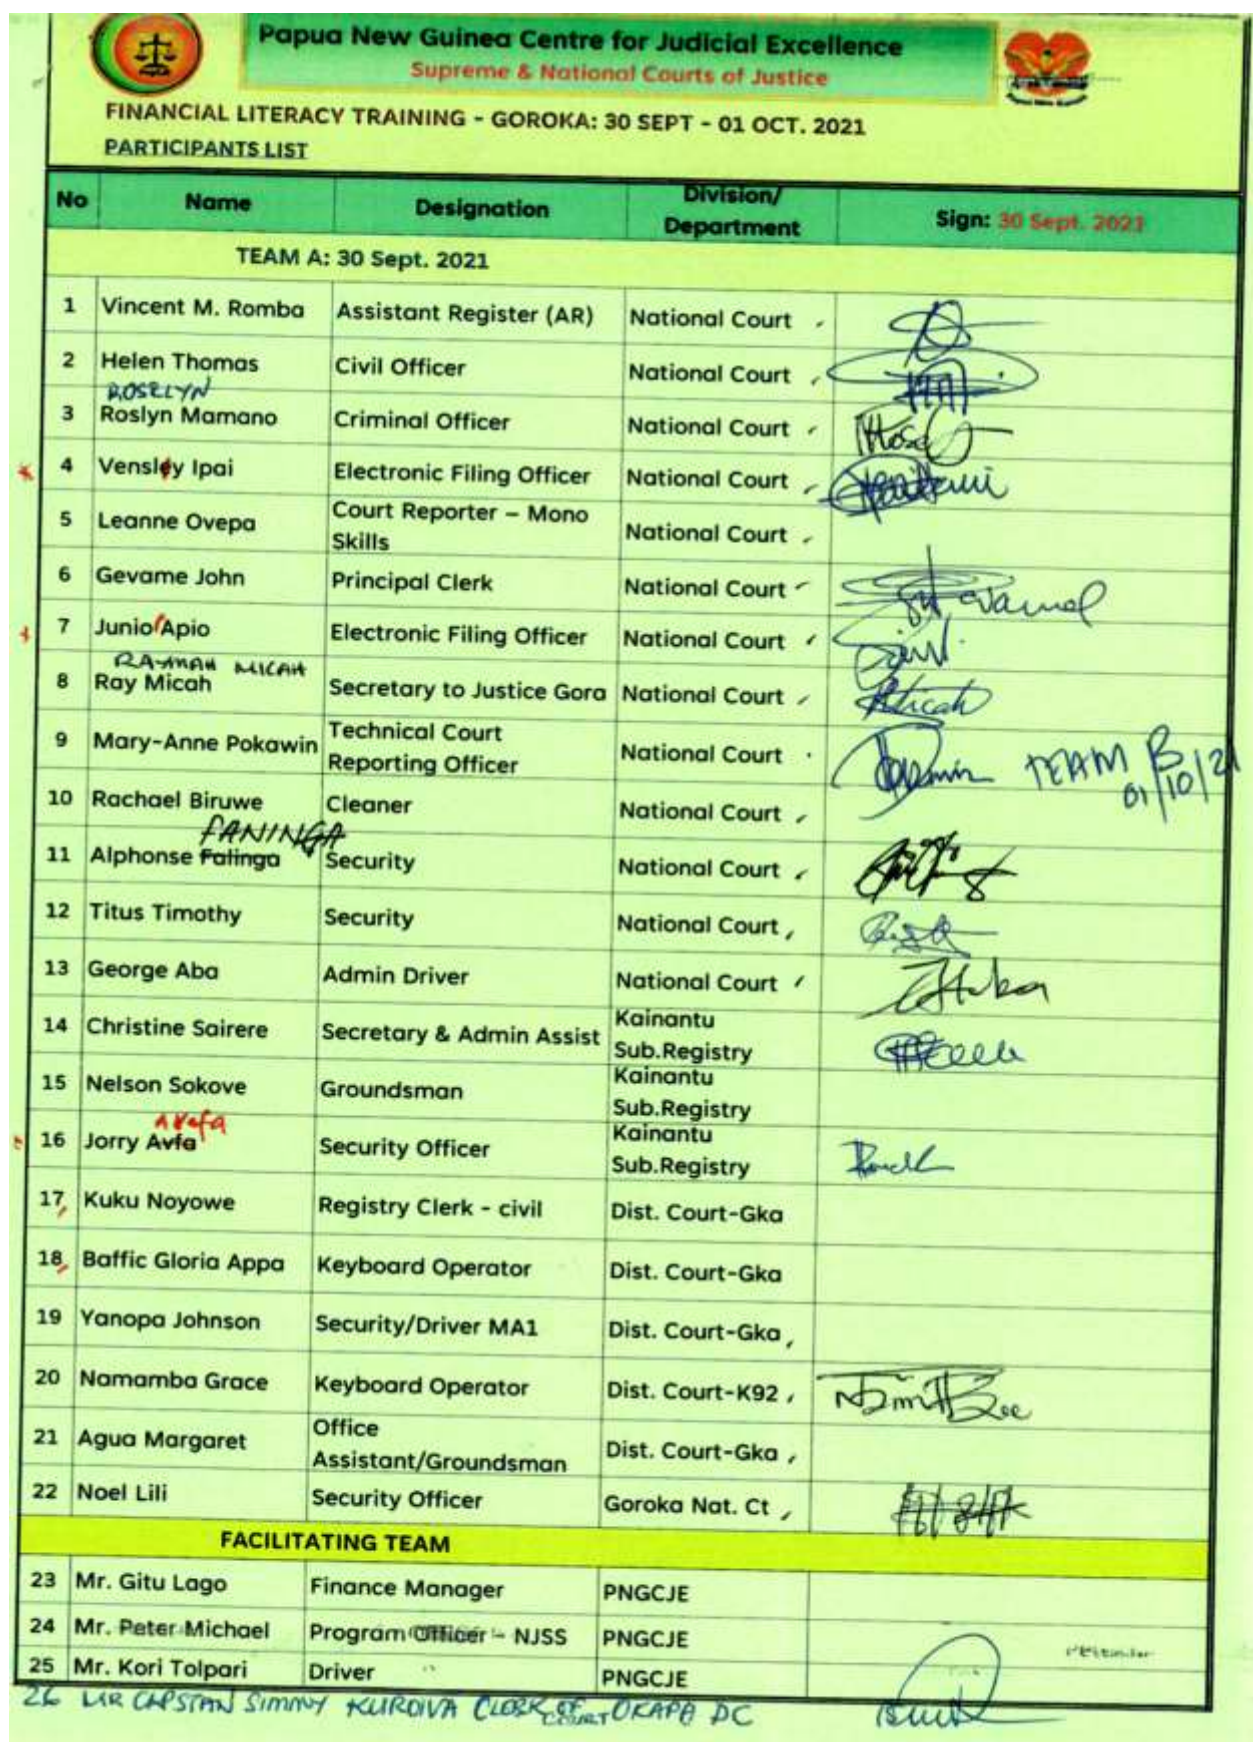 Papua New Guinea Centre for Judicial Excellence
Supreme & National Courts of Justice
FINANCIAL LITERACY TRAINING - GOROKA: 30 SEPT - 01 OCT. 2021
PARTICIPANTS LIST
No Name Designation Division/ Department Sign: 30 Sept. 2021
TEAM A: 30 Sept. 2021
1 Vincent M. Romba Assistant Register (AR) National Court
2 Helen Thomas Civil Officer National Court
ROSELYN
3 Roslyn Mamano Criminal Officer National Court
4 Vensley Ipai Electronic Filing Officer National Court
5 Leanne Ovepa Court Reporter – Mono Skills National Court
6 Gevame John Principal Clerk National Court
7 Junio Apio Electronic Filing Officer National Court
MICAH
8 Ray Micah Secretary to Justice Gora National Court
9 Mary-Anne Pokawin Technical Court Reporting Officer National Court TEAM B 01/10/21
10 Rachael Biruwe Cleaner National Court
FANINGA
11 Alphonse Falinga Security National Court
12 Titus Timothy Security National Court
13 George Aba Admin Driver National Court
14 Christine Sairere Secretary & Admin Assist Kainantu Sub.Registry
15 Nelson Sokove Groundsman Kainantu Sub.Registry
16 Jorry Avfa Security Officer Kainantu Sub.Registry
17 Kuku Noyowe Registry Clerk - civil Dist. Court-Gka
18 Baffic Gloria Appa Keyboard Operator Dist. Court-Gka
19 Yanopa Johnson Security/Driver MA1 Dist. Court-Gka
20 Namamba Grace Keyboard Operator Dist. Court-K92
21 Agua Margaret Office Assistant/Groundsman Dist. Court-Gka
22 Noel Lili Security Officer Goroka Nat. Ct
FACILITATING TEAM
23 Mr. Gitu Lago Finance Manager PNGCJE
24 Mr. Peter Michael Program Officer – NJSS PNGCJE
25 Mr. Kori Tolpari Driver PNGCJE
26 MR CAPSTAN SIMMY KUROIVA CLERK OF COURT OKAPA DC